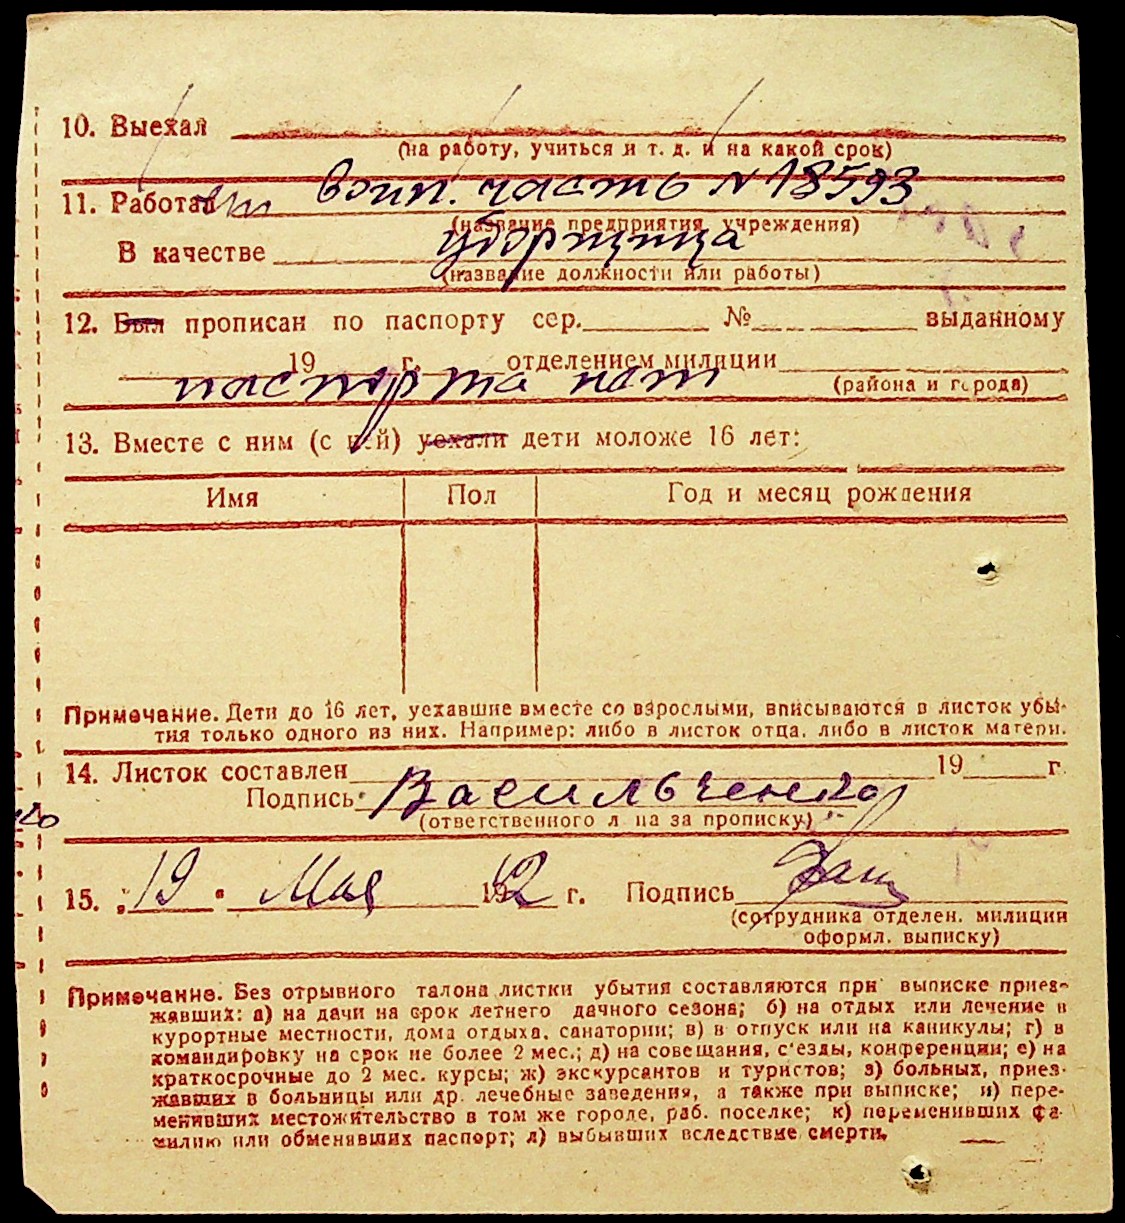 10. Выехал
(на работу, учиться и т. д. и на какой срок)
11. Работает воин. часть N 18593
(название предприятия, учреждения)
В качестве уборщица
(название должности или работы)
12. Был прописан по паспорту сер. № выданному
19 г. отделением милиции
паспорта нет
(района и города)
13. Вместе с ним (с ней) уехали дети моложе 16 лет:
Имя Пол Год и месяц рождения
Примечание. Дети до 16 лет, уехавшие вместе со взрослыми, вписываются в листок убы-
тия только одного из них. Например: либо в листок отца, либо в листок матери.
14. Листок составлен 19 г.
Подпись Васильченко
(ответственного л на за прописку)
15. „19" Мая 192 г. Подпись
(сотрудника отделен. милиции
оформл. выписку)
Примечание. Без отрывного талона листки убытия составляются при выписке приез-
жавших: а) на дачи на срок летнего дачного сезона; б) на отдых или лечение в
курортные местности, дома отдыха, санатории; в) в отпуск или на каникулы; г) в
командировку на срок не более 2 мес.; д) на совещания, с'езды, конференции; е) на
краткосрочные до 2 мес. курсы; ж) экскурсантов и туристов; з) больных, приез-
жавших в больницы или др. лечебные заведения, а также при выписке; и) пере-
менивших местожительство в том же городе, раб. поселке; к) переменивших фа-
милию или обменявших паспорт; л) выбывших вследствие смерти.